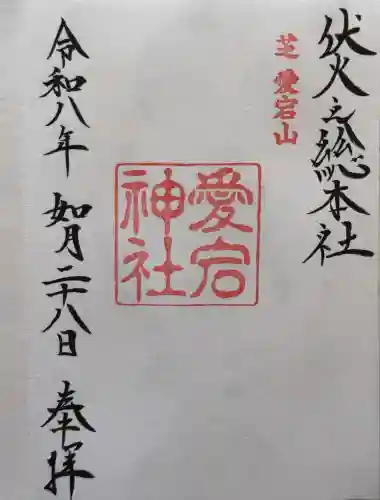 伏火之総本社
芝 愛宕山
愛宕
神社
令和八年 如月二十八日 奉拝